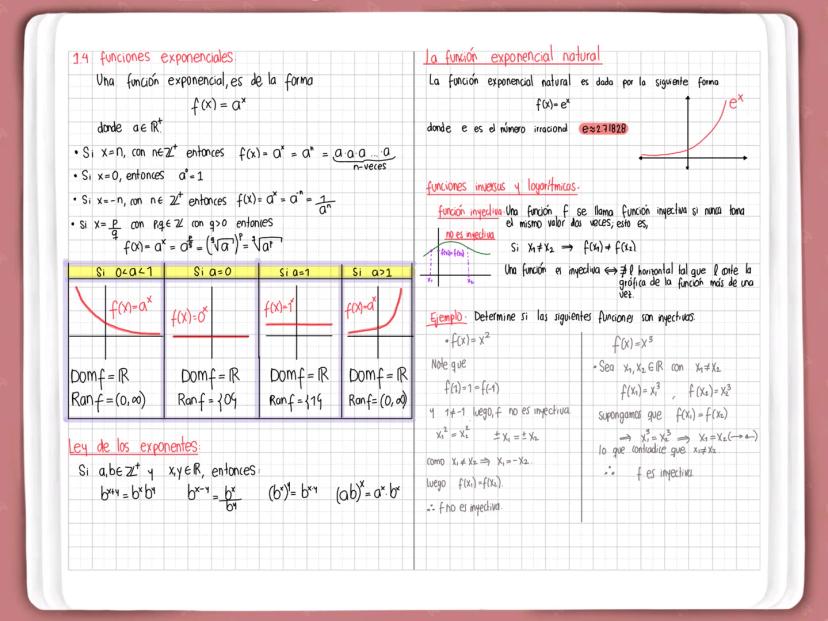 1.4 funciones exponenciales:
Una función exponencial, es de la forma
f(x) = aˣ
donde a ∈ ℝ⁺.
• Si x=n, con n∈ℤ⁺ entonces f(x) = aˣ = aⁿ = a·a·a ... a
n-veces
• Si x=0, entonces a⁰=1
• Si x=-n, con n∈ ℤ⁺ entonces f(x) = aˣ = a⁻ⁿ = 1/aⁿ
• Si x= p/q con p,q ∈ ℤ con q>0 entonces
f(x) = aˣ = a^(p/q) = (ᵠ√a)ᵖ = ᵠ√aᵖ
Si 0<a<1 Si a=0 Si a=1 Si a>1
f(x)=aˣ f(x)=0ˣ f(x)=1ˣ f(x)=aˣ
Dom f = ℝ Dom f = ℝ Dom f = ℝ Dom f = ℝ
Ran f = (0,∞) Ran f = {0} Ran f = {1} Ran f = (0,∞)
Ley de los exponentes:
Si a,b∈ℤ⁺ y x,y∈ℝ, entonces:
b^(x+y) = bˣbʸ b^(x-y) = bˣ/bʸ (bˣ)ʸ = b^(x·y) (ab)ˣ = aˣ·bˣ
La función exponencial natural
La función exponencial natural es dada por la siguiente forma
f(x) = eˣ
eˣ
donde e es el número irracional e≈2.71828
funciones inversas y logarítmicas.
función inyectiva: Una función f se llama función inyectiva si nunca toma
el mismo valor dos veces; esto es,
no es inyectiva
Si x₁≠x₂ ⟹ f(x₁)≠f(x₂)
f(x₁)=f(x₂)
x₁ x₂
Una función es inyectiva ⟺ ∄ ℓ horizontal tal que ℓ corte la
gráfica de la función más de una
vez.
Ejemplo: Determine si las siguientes funciones son inyectivas.
• f(x) = x²
Note que
f(1)=1=f(-1)
y 1≠-1 luego, f no es inyectiva
x₁² = x₂² ±x₁ = ±x₂
como x₁≠x₂ ⟹ x₁=-x₂
luego f(x₁)=f(x₂).
∴ f no es inyectiva.
f(x)=x³
• Sea x₁,x₂∈ℝ con x₁≠x₂
f(x₁)=x₁³ , f(x₂)=x₂³
supongamos que f(x₁)=f(x₂)
⟹ x₁³=x₂³ ⟹ x₁=x₂(→←)
lo que contradice que x₁≠x₂
∴ f es inyectiva